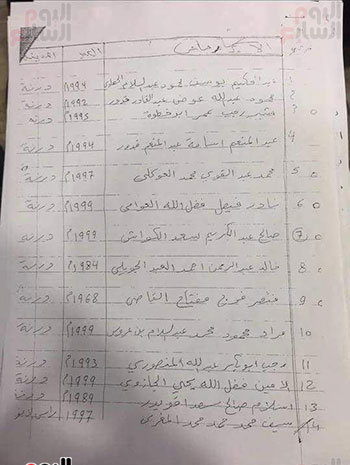 اليوم السابع
المدينة العمر الاسم رباعي
1 عبد الحكيم يوسف محمود عبد السلام 1994م درنة
2 محمود عبد الله عوض عبد القادر قدور 1992م درنة
3 رجب عمر ابو خطوة 1995م درنة
4 عبد المنعم اسامة عبد المنعم قدور 1994م درنة
5 محمد عبد القوي محمد العوكلي 1997م درنة
6 نادر فيصل فضل الله العوامي 1999م درنة
7 صالح عبد الكريم سعد الكواش 1999م درنة
8 خالد عبد الرحمن احمد العبد 1984م درنة
9 منتصر فرج مفتاح القاضي 1968م درنة
10 مراد محمود محمد عبد السلام بن عروس 1999م درنة
11 رجب ابوبكر عبد الله المنصوري 1993م درنة
12 الامين فضل الله يحي الجازوي 1999م درنة
13 اسلام صالح سعد 1989م درنة
14 سيف محمود محمد محمد المغربي 1997